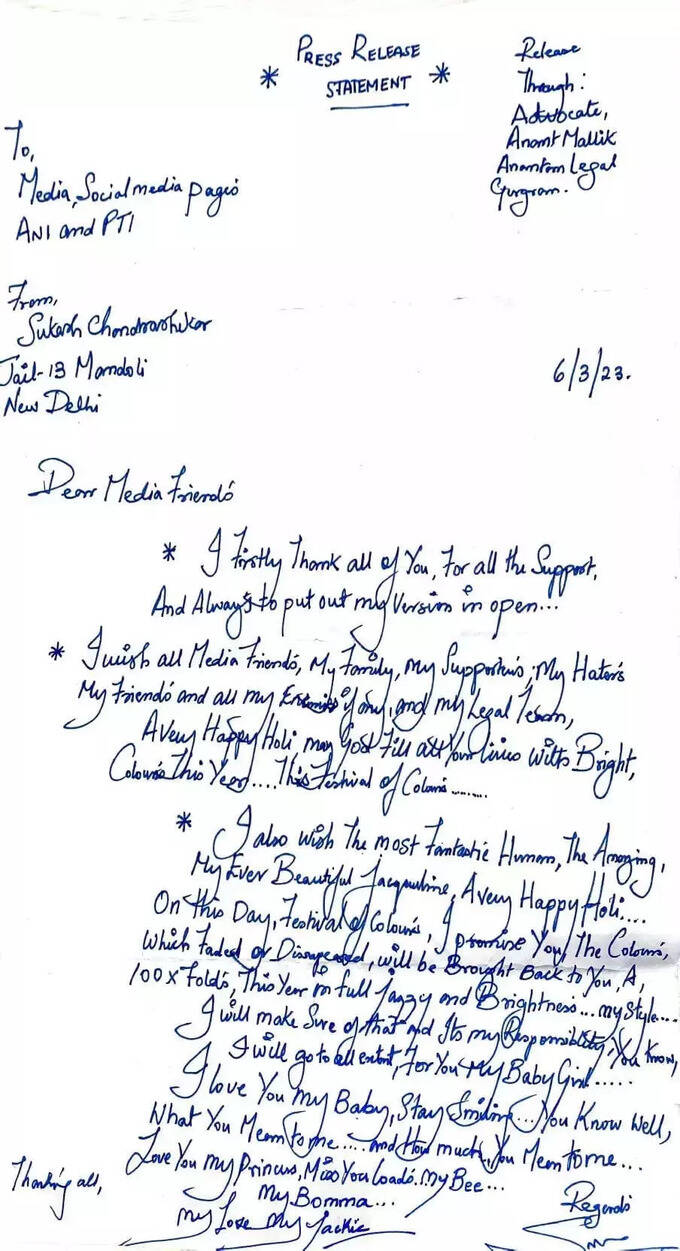 * PRESS RELEASE *
STATEMENT
Release
Through:
Advocate,
Anant Mallik
Anantam Legal
Gurgram.
To,
Media, Social media pages
ANI and PTI
From,
Sukash Chandrashekar
Jail-13 Mandoli
New Delhi
6/3/23.
Dear Media Friends
* I Firstly Thank all of You, For all the Support,
And Always to put out my Version in open...
* I wish all Media Friends, My Family, My Supporters, My Haters
My Friends and all my Enemies if any, and my Legal Team,
A Very Happy Holi may God Fill all Your Lives with Bright,
Colours This Year.... This Festival of Colours........
* I also wish The most Fantastic Human, The Amazing,
My Ever Beautiful Jacqueline, A very Happy Holi....
On this Day, Festival of Colours, I promise You, The Colours,
Which Faded or Disappeared, will be Brought Back to You, A,
100 x Folds, This Year in full Jazzy and Brightness... my Style....
I will make Sure of that and Its my Responsiblity, You Know,
I will go to all extent, For You My Baby Girl.....
I love You my Baby, Stay Smiling... You Know Well,
What You Mean to me.... and How much, You Mean to me...
Love You my Princess, Miss You Loads. My Bee...
My Bomma...
My Love My Jackie
Thanking all,
Regards